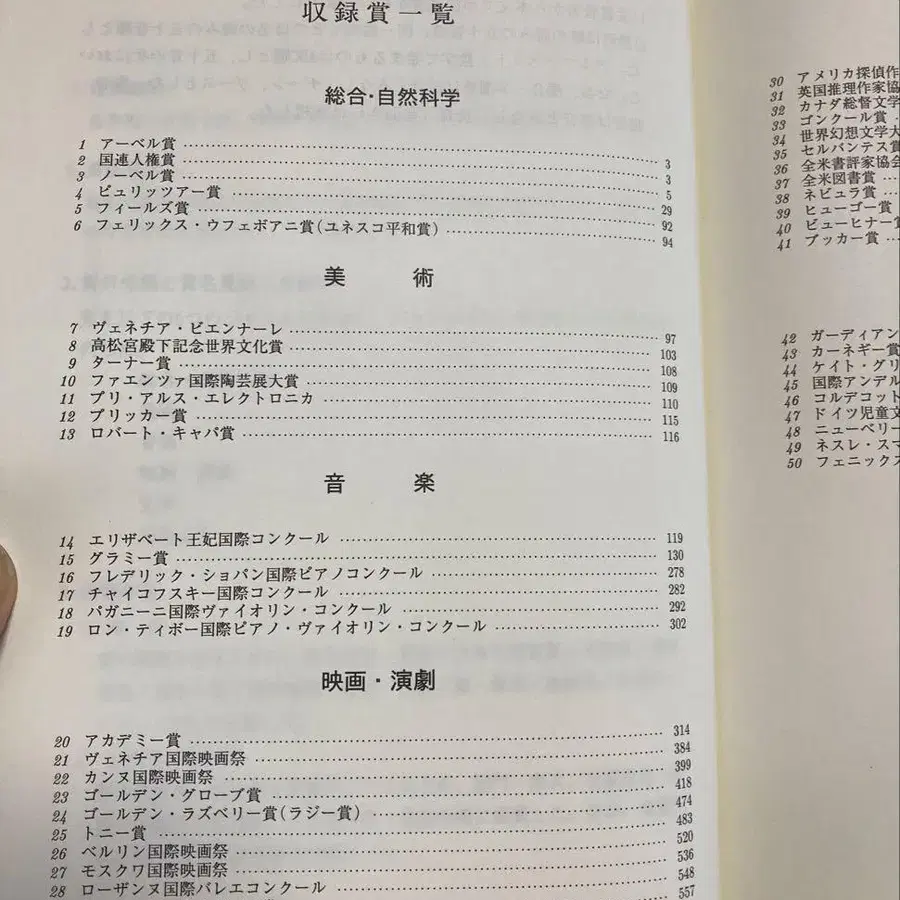 収録賞一覧
総合・自然科学
1 アーベル賞 3
2 国連人権賞 3
3 ノーベル賞 5
4 ピュリッツアー賞 29
5 フィールズ賞 92
6 フェリックス・ウフェボアニ賞(ユネスコ平和賞) 94
美術
7 ヴェネチア・ビエンナーレ 97
8 高松宮殿下記念世界文化賞 103
9 ターナー賞 108
10 ファエンツァ国際陶芸展大賞 109
11 プリ・アルス・エレクトロニカ 110
12 プリッカー賞 115
13 ロバート・キャパ賞 116
音楽
14 エリザベート王妃国際コンクール 119
15 グラミー賞 130
16 フレデリック・ショパン国際ピアノコンクール 278
17 チャイコフスキー国際コンクール 282
18 パガニーニ国際ヴァイオリン・コンクール 292
19 ロン・ティボー国際ピアノ・ヴァイオリン・コンクール 302
映画・演劇
20 アカデミー賞 314
21 ヴェネチア国際映画祭 384
22 カンヌ国際映画祭 399
23 ゴールデン・グローブ賞 418
24 ゴールデン・ラズベリー賞(ラジー賞) 474
25 トニー賞 483
26 ベルリン国際映画祭 520
27 モスクワ国際映画祭 536
28 ローザンヌ国際バレエコンクール 548
557
30 アメリカ探偵作
31 英国推理作家協
32 カナダ総督文学
33 ゴンクール賞
34 世界幻想文学大
35 セルバンテス賞
36 全米書評家協会
37 全米図書賞
38 ネビュラ賞
39 ヒューゴー賞
40 ビューヒナー賞
41 ブッカー賞
42 ガーディアン
43 カーネギー賞
44 ケイト・グリ
45 国際アンデル
46 コルデコット
47 ドイツ児童文
48 ニューベリー
49 ネスレ・スマ
50 フェニックス